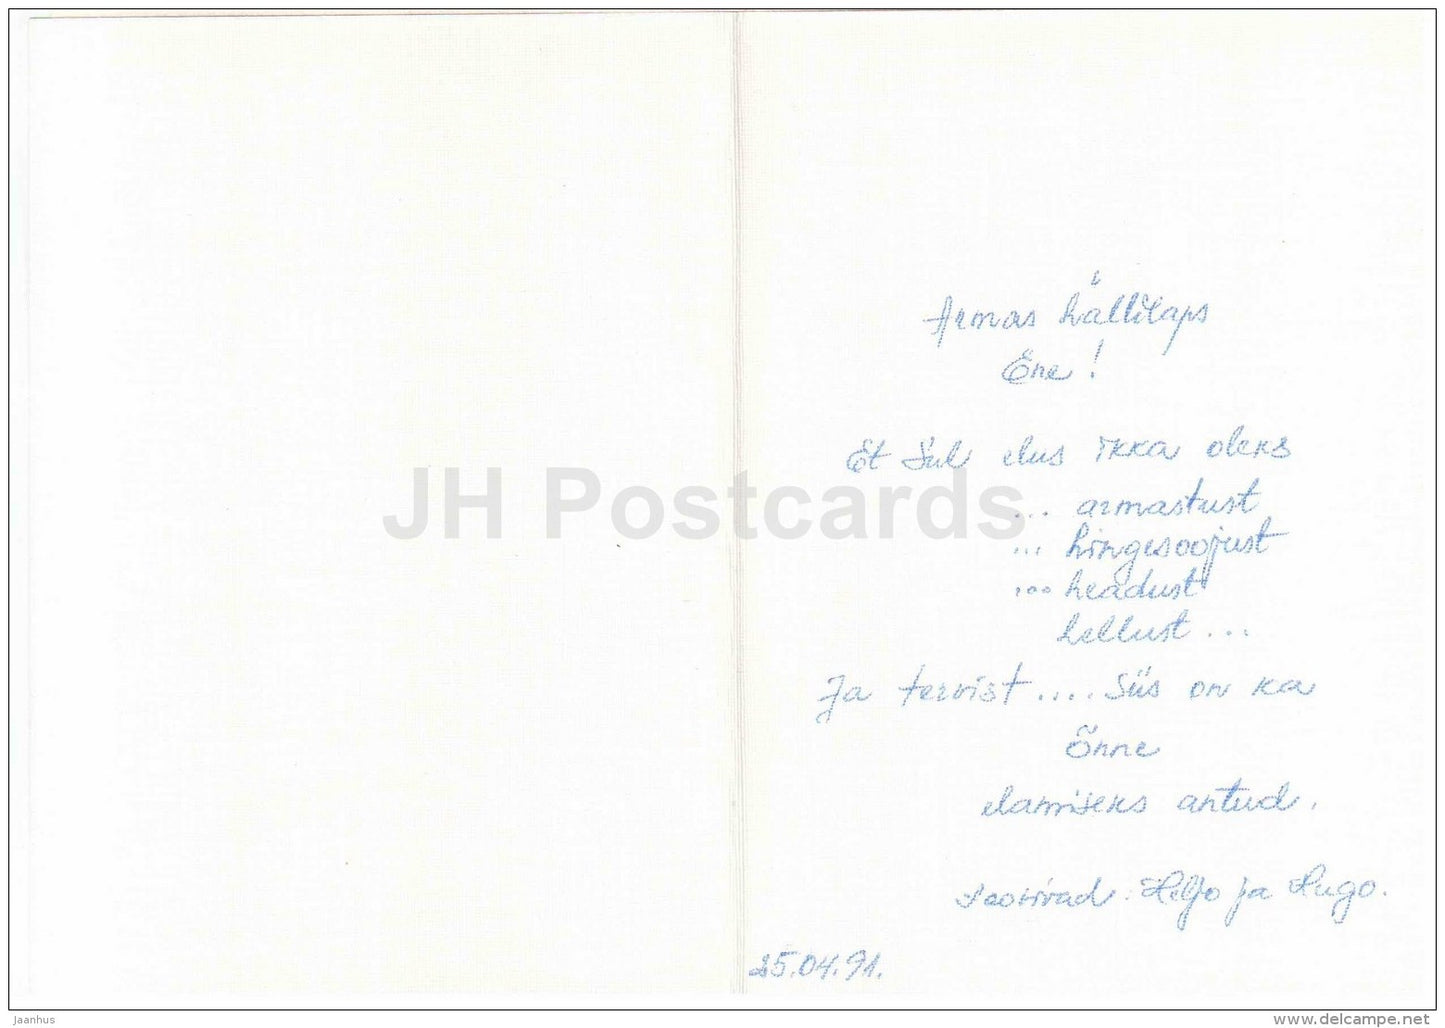 Armas hällilaps
Ene!
Et Sul elus ikka oleks
... armastust
... hingesoojust
... headust
hellust...
Ja tervist.... Siis on ka
Õnne
elamiseks antud.
soovivad: Heljo ja Hugo.
25.04.91.
JH Postcards
jaanhus
www.delcampe.net